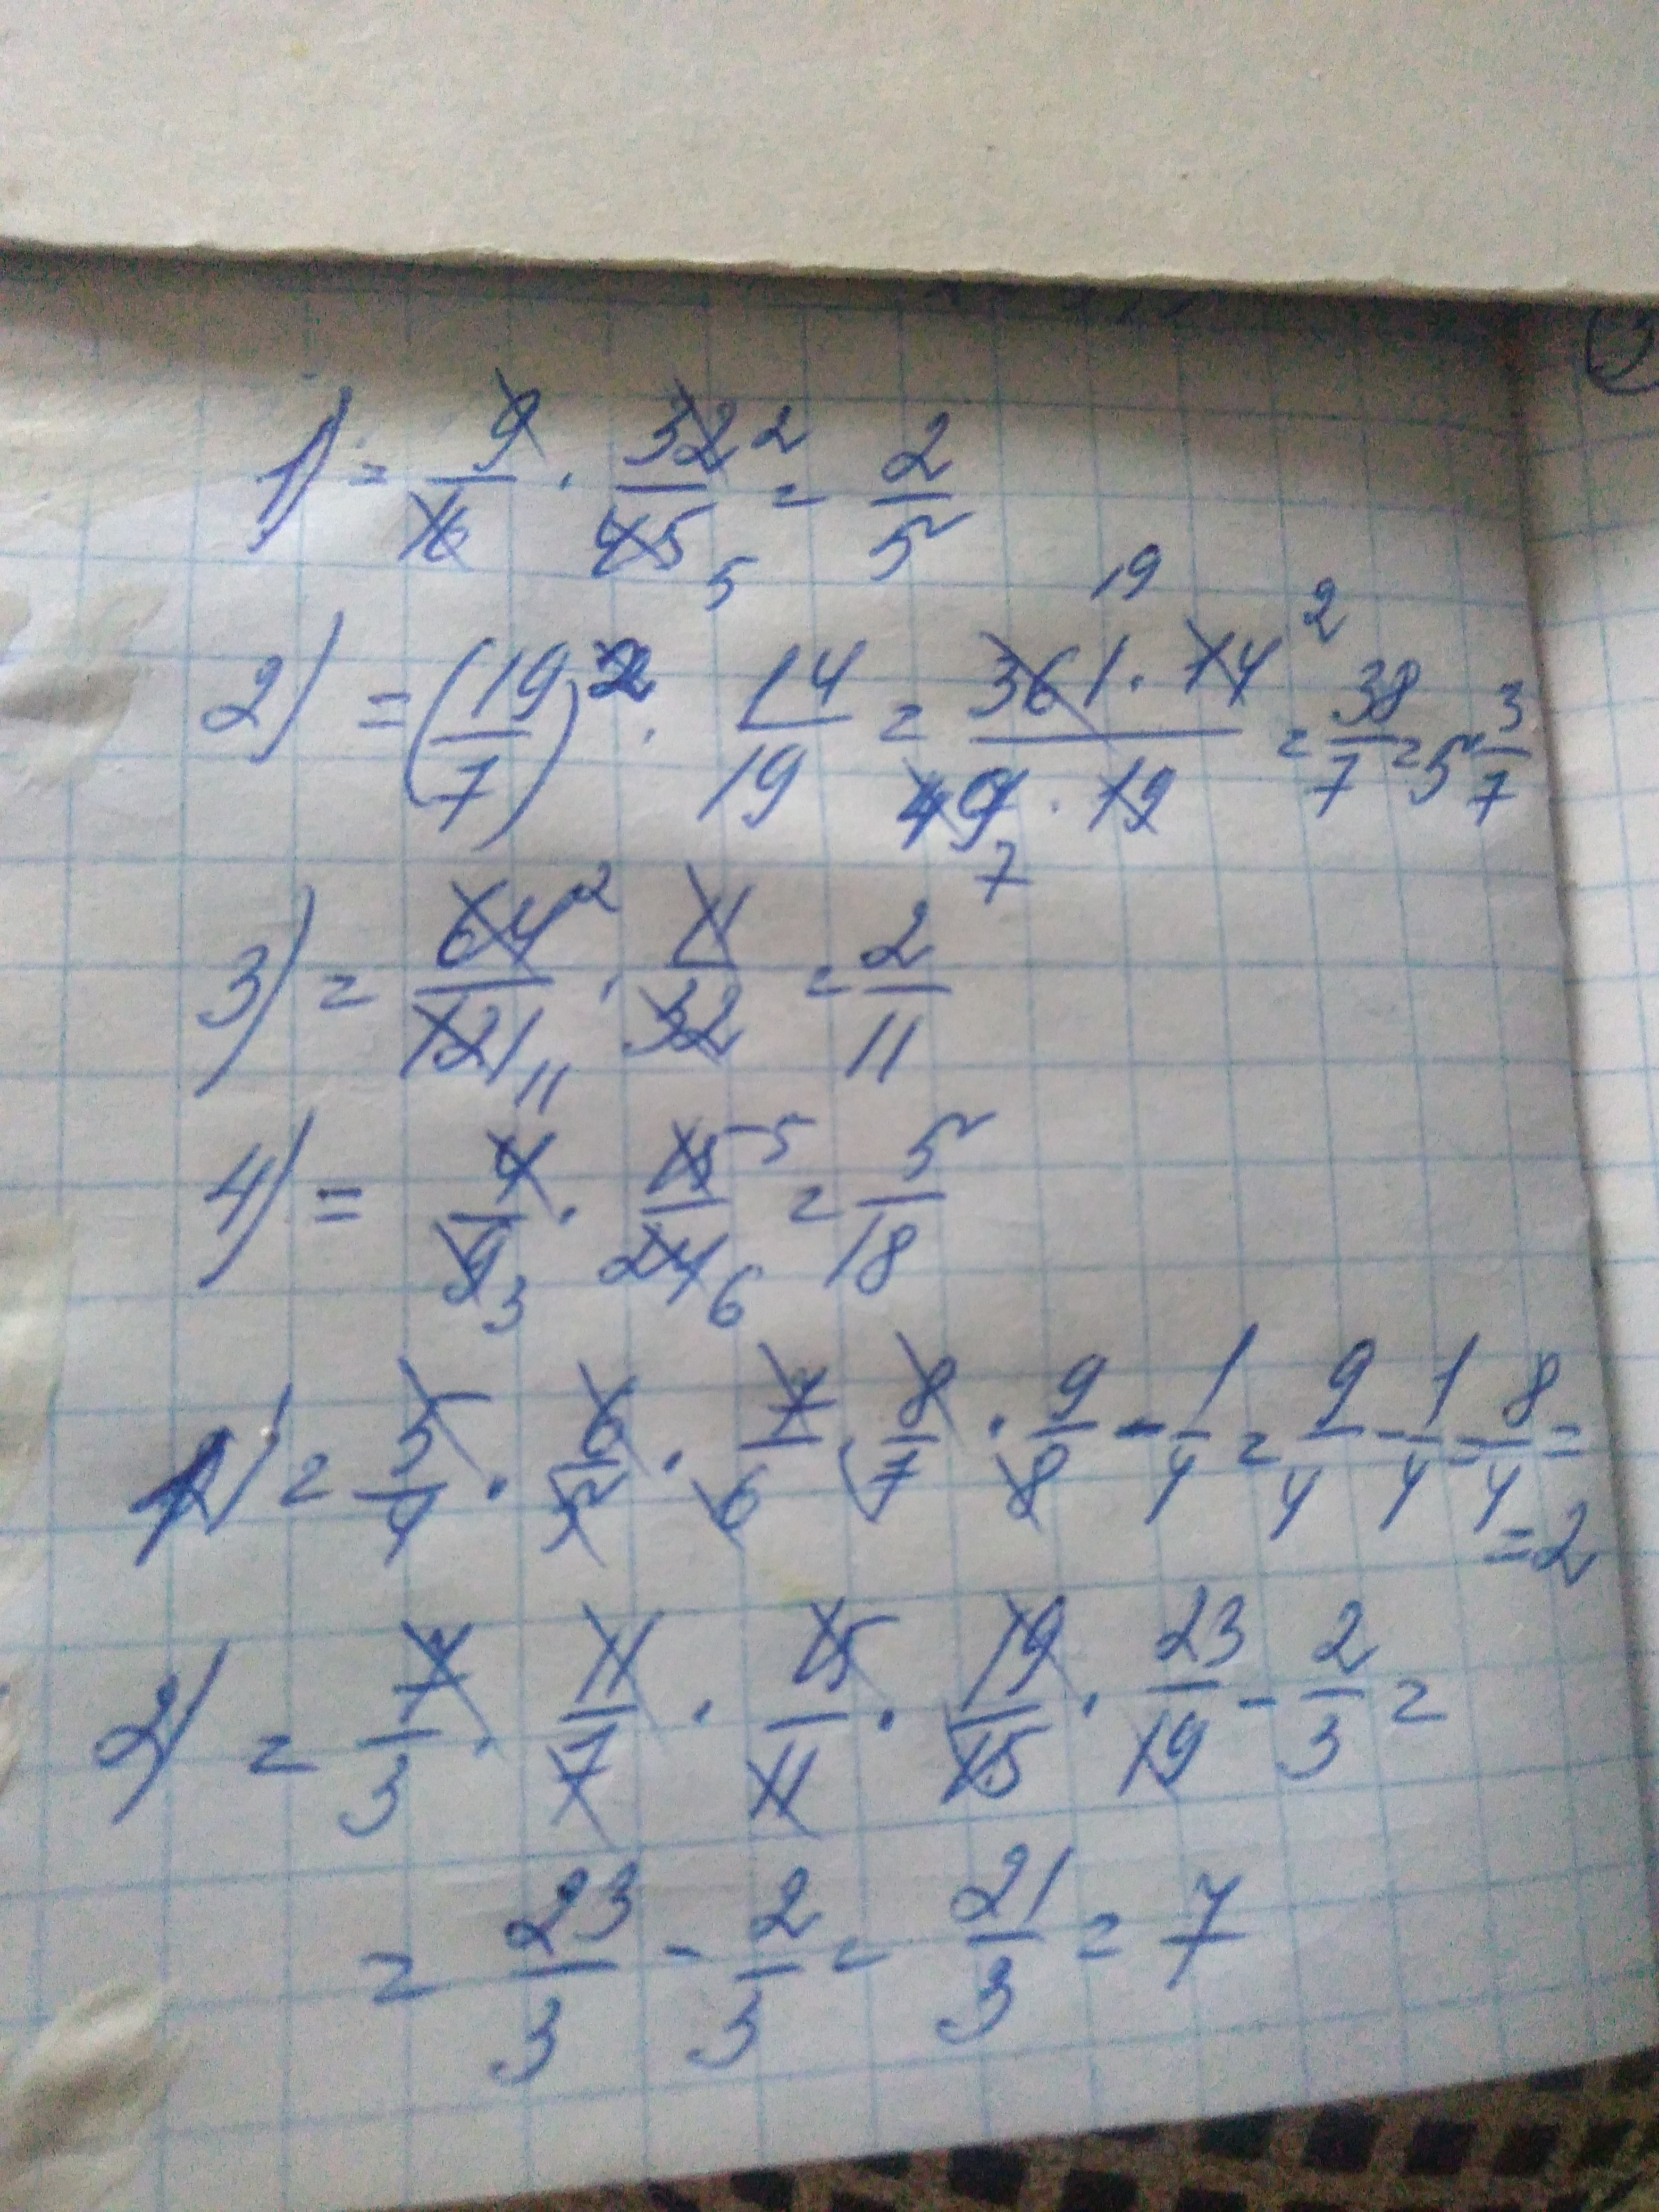 1) = 9/16 · 32/45 2 5 = 2/5
2) = (19/7)² · 14/19 = 361 · 14 / 49 · 19 19 2 7 = 38/7 = 5 3/7
3) = 64/121 2 11 · 11/32 = 2/11
4) = 4/9 3 · 15/24 5 6 = 5/18
1) = 5/4 · 6/5 · 7/6 · 8/7 · 9/8 - 1/4 = 9/4 - 1/4 = 8/4 =
= 2
2) = 7/3 · 11/7 · 15/11 · 19/15 · 23/19 - 2/3 =
= 23/3 - 2/3 = 21/3 = 7